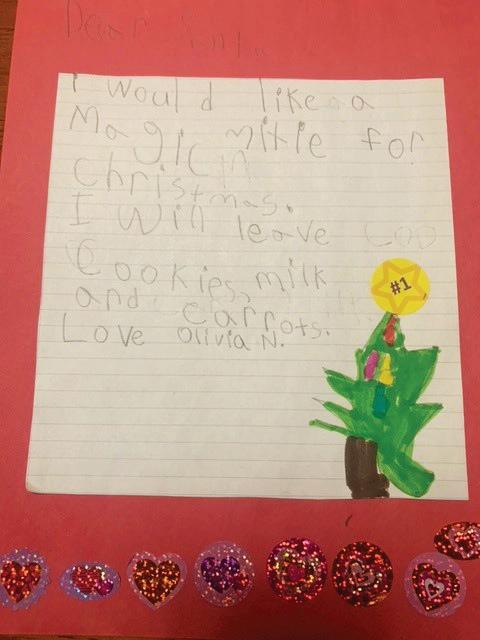 Dear Santa
I would like a
Magic mixie for
Christmas.
I will leave Coo
Cookies, milk
and carrots.
Love Olivia N.
#1